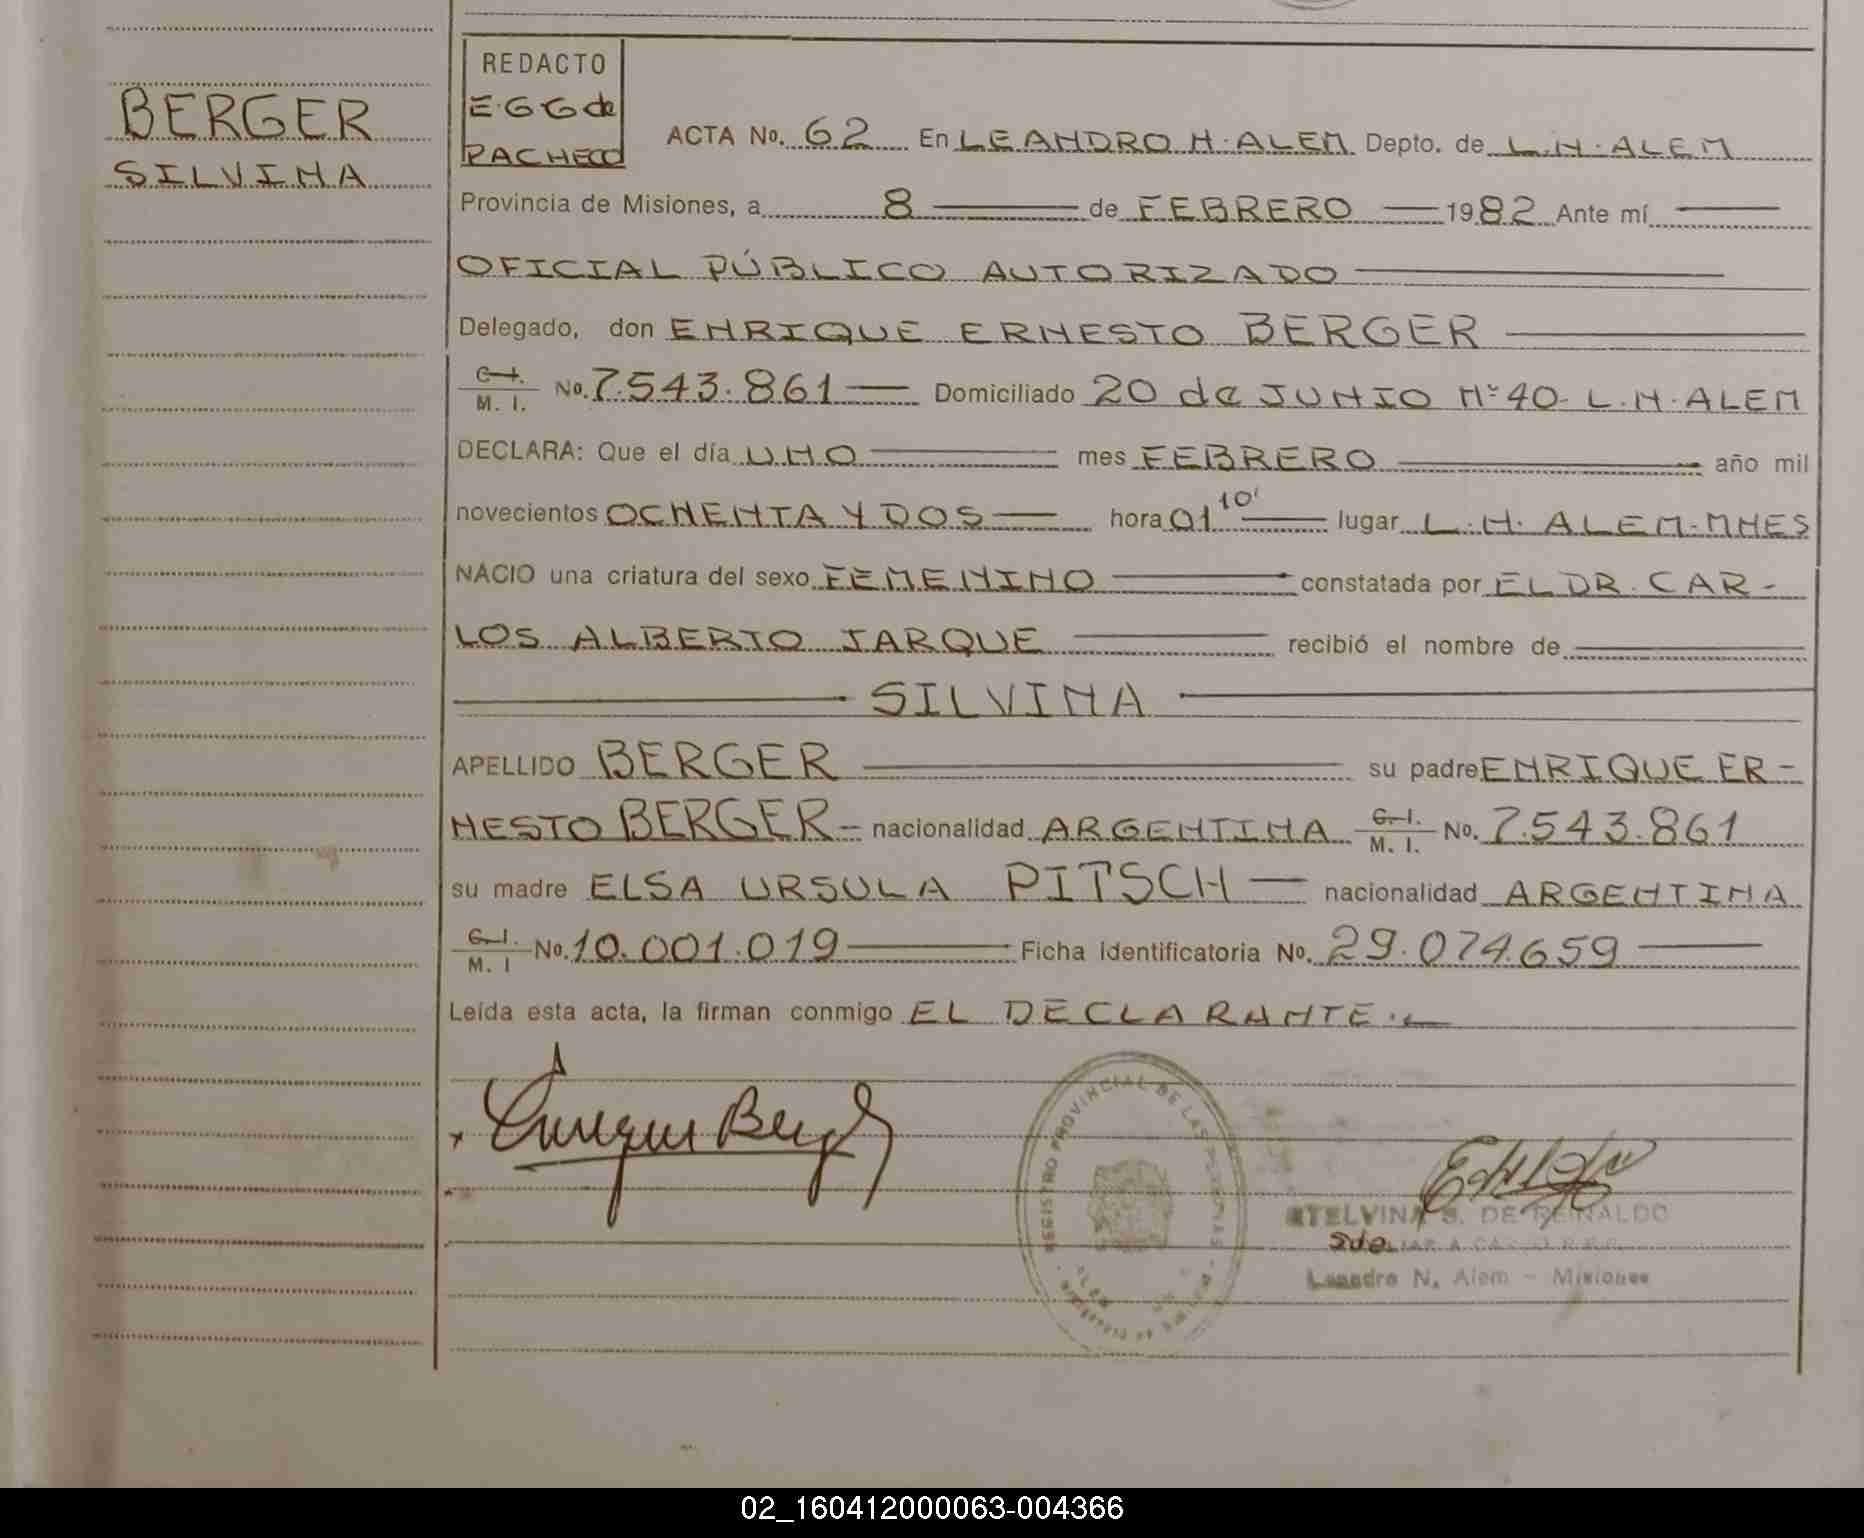 BERGER
SILVINA
REDACTO
E.G G de
PACHECO
ACTA No. 62 En LEANDRO N. ALEM Depto. de L.N. ALEM
Provincia de Misiones, a 8 de FEBRERO 1982 Ante mí
OFICIAL PÚBLICO AUTORIZADO
Delegado, don ENRIQUE ERNESTO BERGER
C. I.
M. I. No. 7.543.861 Domiciliado 20 de JUNIO Nº 40- L.N. ALEM
DECLARA: Que el día UNO mes FEBRERO año mil
novecientos OCHENTA Y DOS hora 01 10' lugar L.N. ALEM-MNES
NACIO una criatura del sexo FEMENINO constatada por EL DR. CAR-
LOS ALBERTO JARQUE recibió el nombre de
SILVINA
APELLIDO BERGER su padre ENRIQUE ER-
NESTO BERGER- nacionalidad ARGENTINA C. I.
M. I. No. 7.543.861
su madre ELSA URSULA PITSCH nacionalidad ARGENTINA
C. I.
M. I No. 10.001.019 Ficha identificatoria No. 29.074.659
Leída esta acta, la firman conmigo EL DECLARANTE.-
Enrique Berger
REGISTRO PROVINCIAL DE LAS PERSONAS
ALEM
ETELVINA S. DE REINALDO
Leandro N. Alem - Misiones
02_160412000063-004366